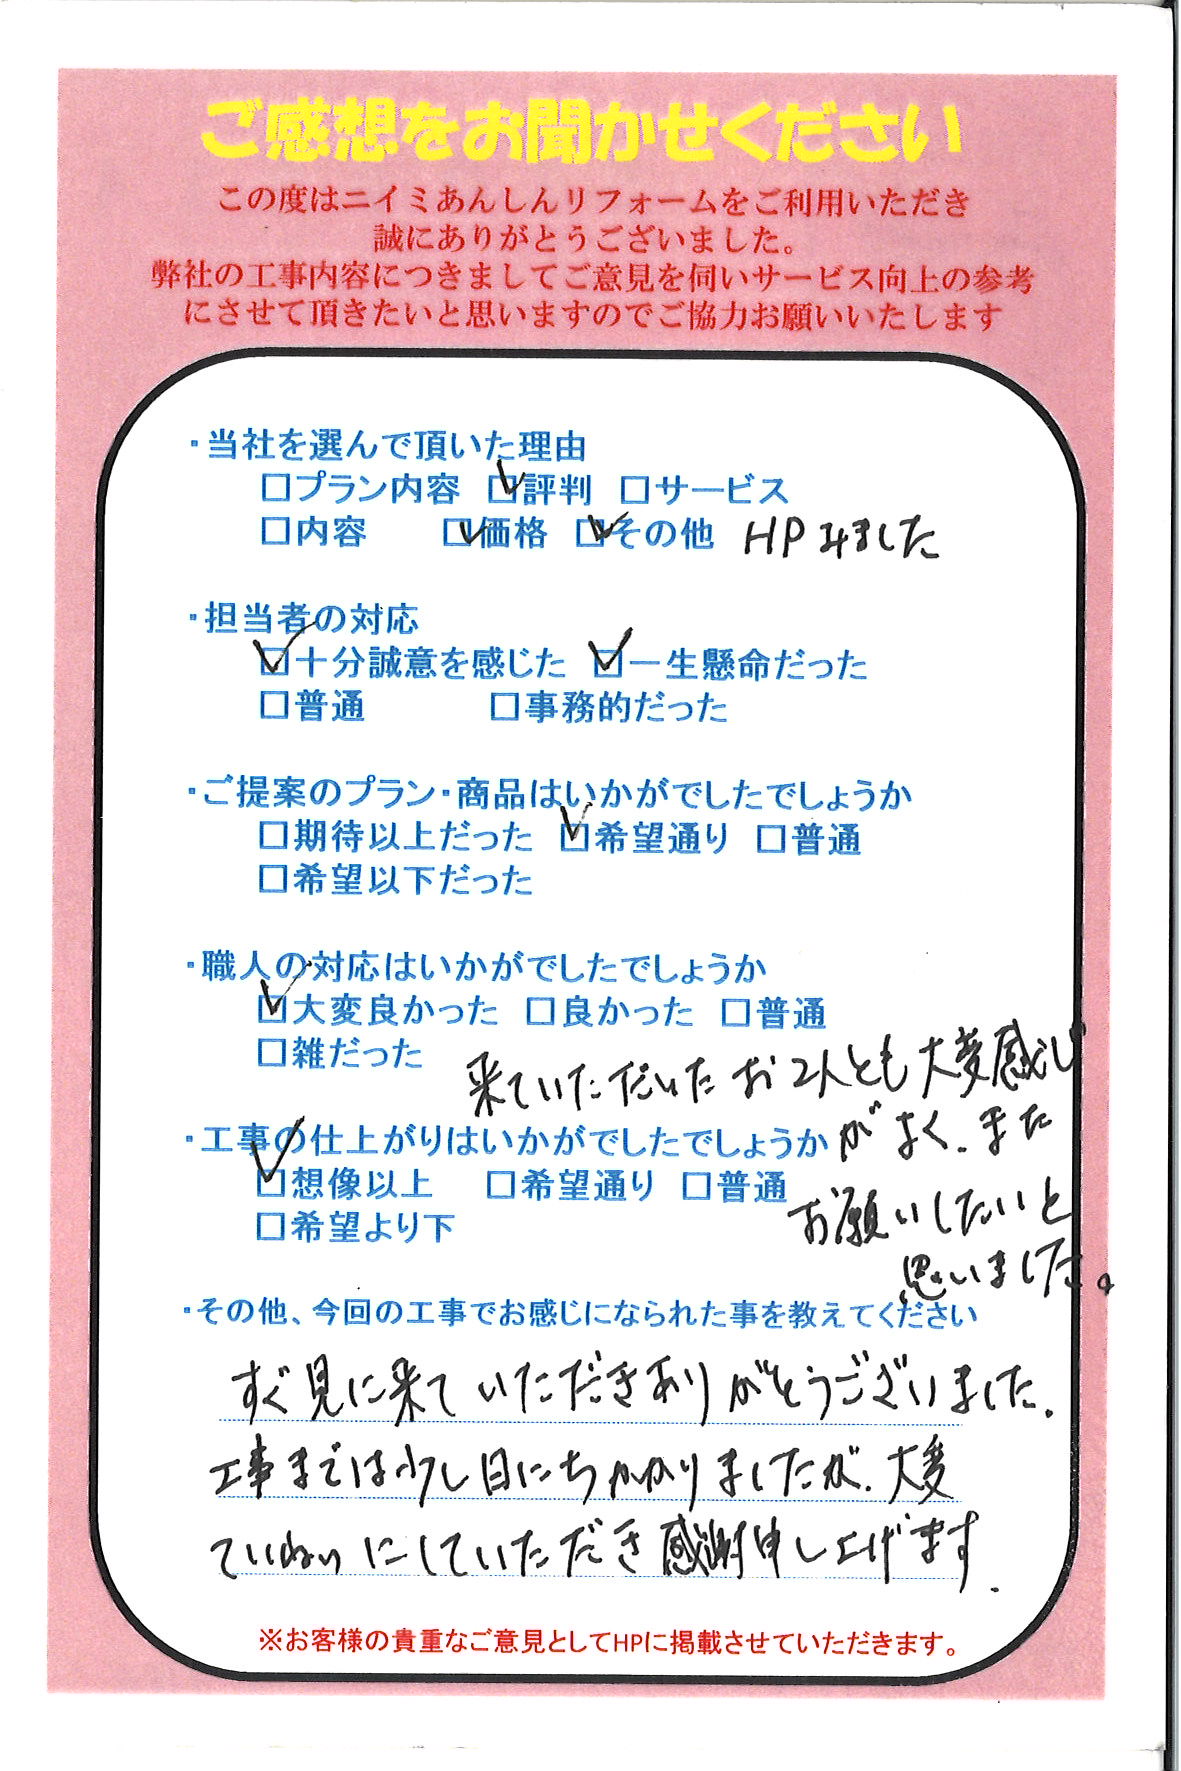 ご感想をお聞かせください
この度はニイミあんしんリフォームをご利用いただき
誠にありがとうございました。
弊社の工事内容につきましてご意見を伺いサービス向上の参考
にさせて頂きたいと思いますのでご協力お願いいたします
・当社を選んで頂いた理由
□プラン内容 ☑評判 □サービス
□内容 ☑価格 ☑その他 HPみました
・担当者の対応
☑十分誠意を感じた ☑一生懸命だった
□普通 □事務的だった
・ご提案のプラン・商品はいかがでしたでしょうか
□期待以上だった ☑希望通り □普通
□希望以下だった
・職人の対応はいかがでしたでしょうか
☑大変良かった □良かった □普通
□雑だった
来ていただいたお2人とも大変感じ
がよく、また
お願いしたいと
思いました。
・工事の仕上がりはいかがでしたでしょうか
☑想像以上 □希望通り □普通
□希望より下
・その他、今回の工事でお感じになられた事を教えてください
すぐ見に来ていただきありがとうございました.
工事までは少し日にちかかりましたが、大変
ていねいにしていただき感謝申し上げます.
※お客様の貴重なご意見としてHPに掲載させていただきます。